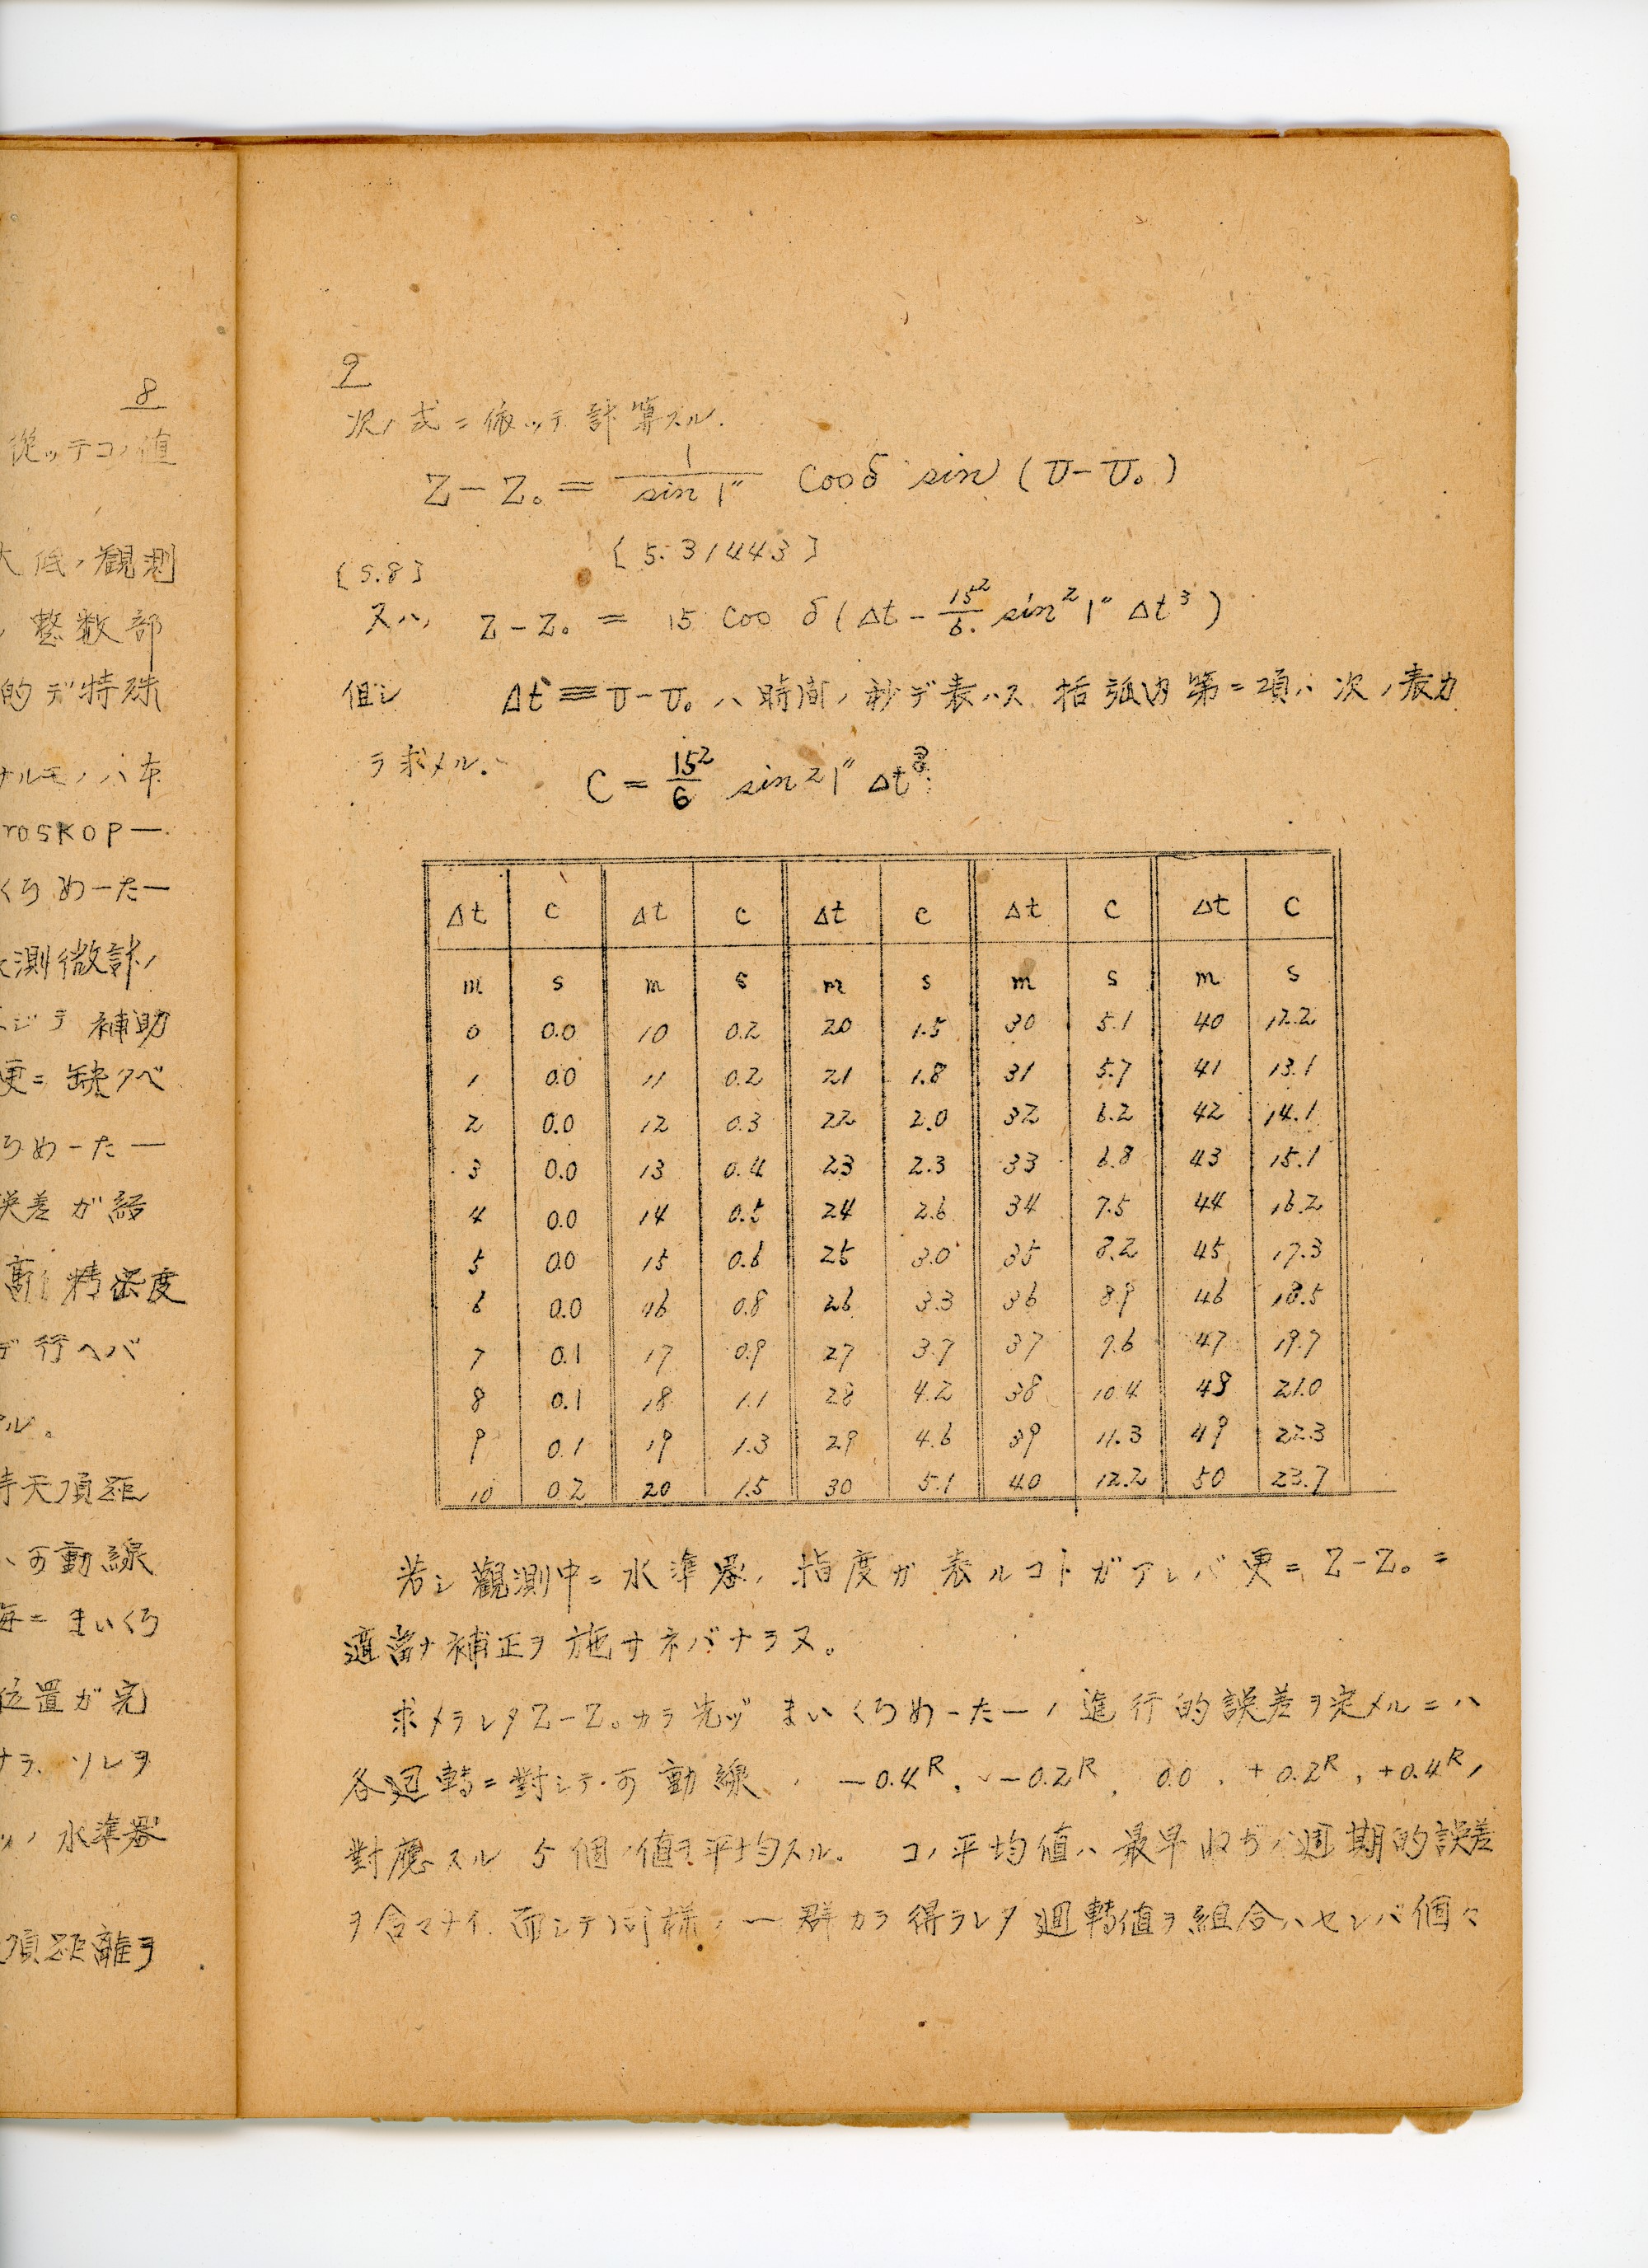 8
従ッテコノ値
大低ノ観測
ノ整数部
的デ特殊
ナルモノハ本
roskop—
くろめーたー
測微計ノ
ジテ補助
更ニ缺クベ
ろめーたー
誤差ガ経
高イ精密度
デ行ヘバ
ル。
時天頂距
可動線
毎ニまいくろ
位置ガ完
ナラ、ソレヲ
ノ水準器
頂距離ヲ
9
次ノ式ニ依ッテ計算スル.
Z－Z₀ = 1/sin 1″ Cos δ sin (U－U₀)
[5.31443]
[5.8]
又ハ, Z－Z₀ = 15 Cos δ (Δt － 15²/6. sin² 1″ Δt³)
但シ Δt ≡ U－U₀ ハ時間ノ秒デ表ハス 括弧内第二項ハ次ノ表カ
ラ求メル.
C = 15²/6 sin² 1″ Δt³
Δt C Δt C Δt C Δt C Δt C
m s m s m s m s m s
0 0.0 10 0.2 20 1.5 30 5.1 40 12.2
1 0.0 11 0.2 21 1.8 31 5.7 41 13.1
2 0.0 12 0.3 22 2.0 32 6.2 42 14.1
3 0.0 13 0.4 23 2.3 33 6.8 43 15.1
4 0.0 14 0.5 24 2.6 34 7.5 44 16.2
5 0.0 15 0.6 25 3.0 35 8.2 45 17.3
6 0.0 16 0.8 26 3.3 36 8.9 46 18.5
7 0.1 17 0.9 27 3.7 37 9.6 47 19.7
8 0.1 18 1.1 28 4.2 38 10.4 48 21.0
9 0.1 19 1.3 29 4.6 39 11.3 49 22.3
10 0.2 20 1.5 30 5.1 40 12.2 50 23.7
若シ観測中ニ水準器ノ指度ガ表ルコトガアレバ更ニ Z－Z₀ ニ
適當ナ補正ヲ施サネバナラヌ。
求メラレタZ－Z₀カラ先ヅまいくろめーたーノ進行的誤差ヲ定メルニハ
各週轉ニ對シテ可動線ノ －0.4ᴿ, －0.2ᴿ, 0.0, ＋0.2ᴿ, ＋0.4ᴿ,
對應スル5個ノ値ヲ平均スル. コノ平均値ハ最早 週期的誤差
ヲ含マナイ 而シテ同様ノ一群カラ得ラレタ週轉値ヲ組合ハセレバ個々